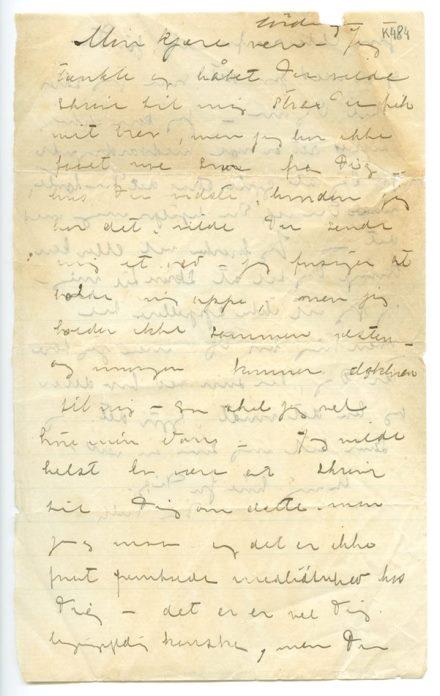 K484
Min kjære ven – Jeg
tænkte og håbet Du vilde
skrive til mig strax Du fik
mit brev, men jeg har ikke
faaet noe svar fra Dig
hvis Du vidste, hvordan jeg
har det vilde Du sende
mig et ord – jeg forsøger at
holde mig oppe, men jeg
holder ikke sammen resten –
og imorgen kommer doktoren
til mig – saa skal jeg vel
høre min dom – Jeg vilde
helst la være at skrive
til Dig om dette men
jeg maa og det er ikke
for at fremkalde medlidenhed hos
Dig – det er vel Dig
ligegyldig kanske, men Du